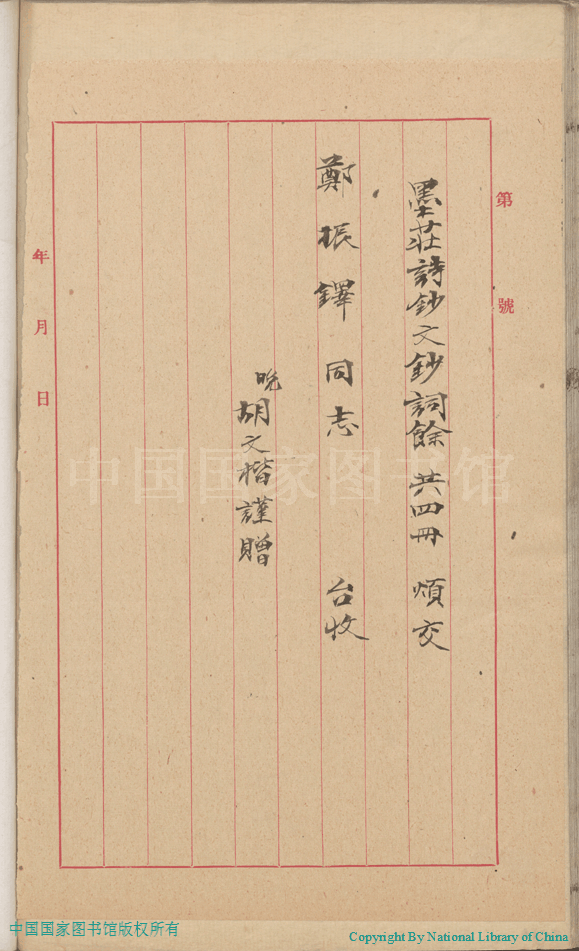 第 號
墨莊詩鈔文鈔詞餘共四冊 煩交
鄭振鐸同志 台收
晚胡文楷謹贈
年 月 日
中国国家图书馆
中国国家图书馆版权所有
Copyright By National Library of China